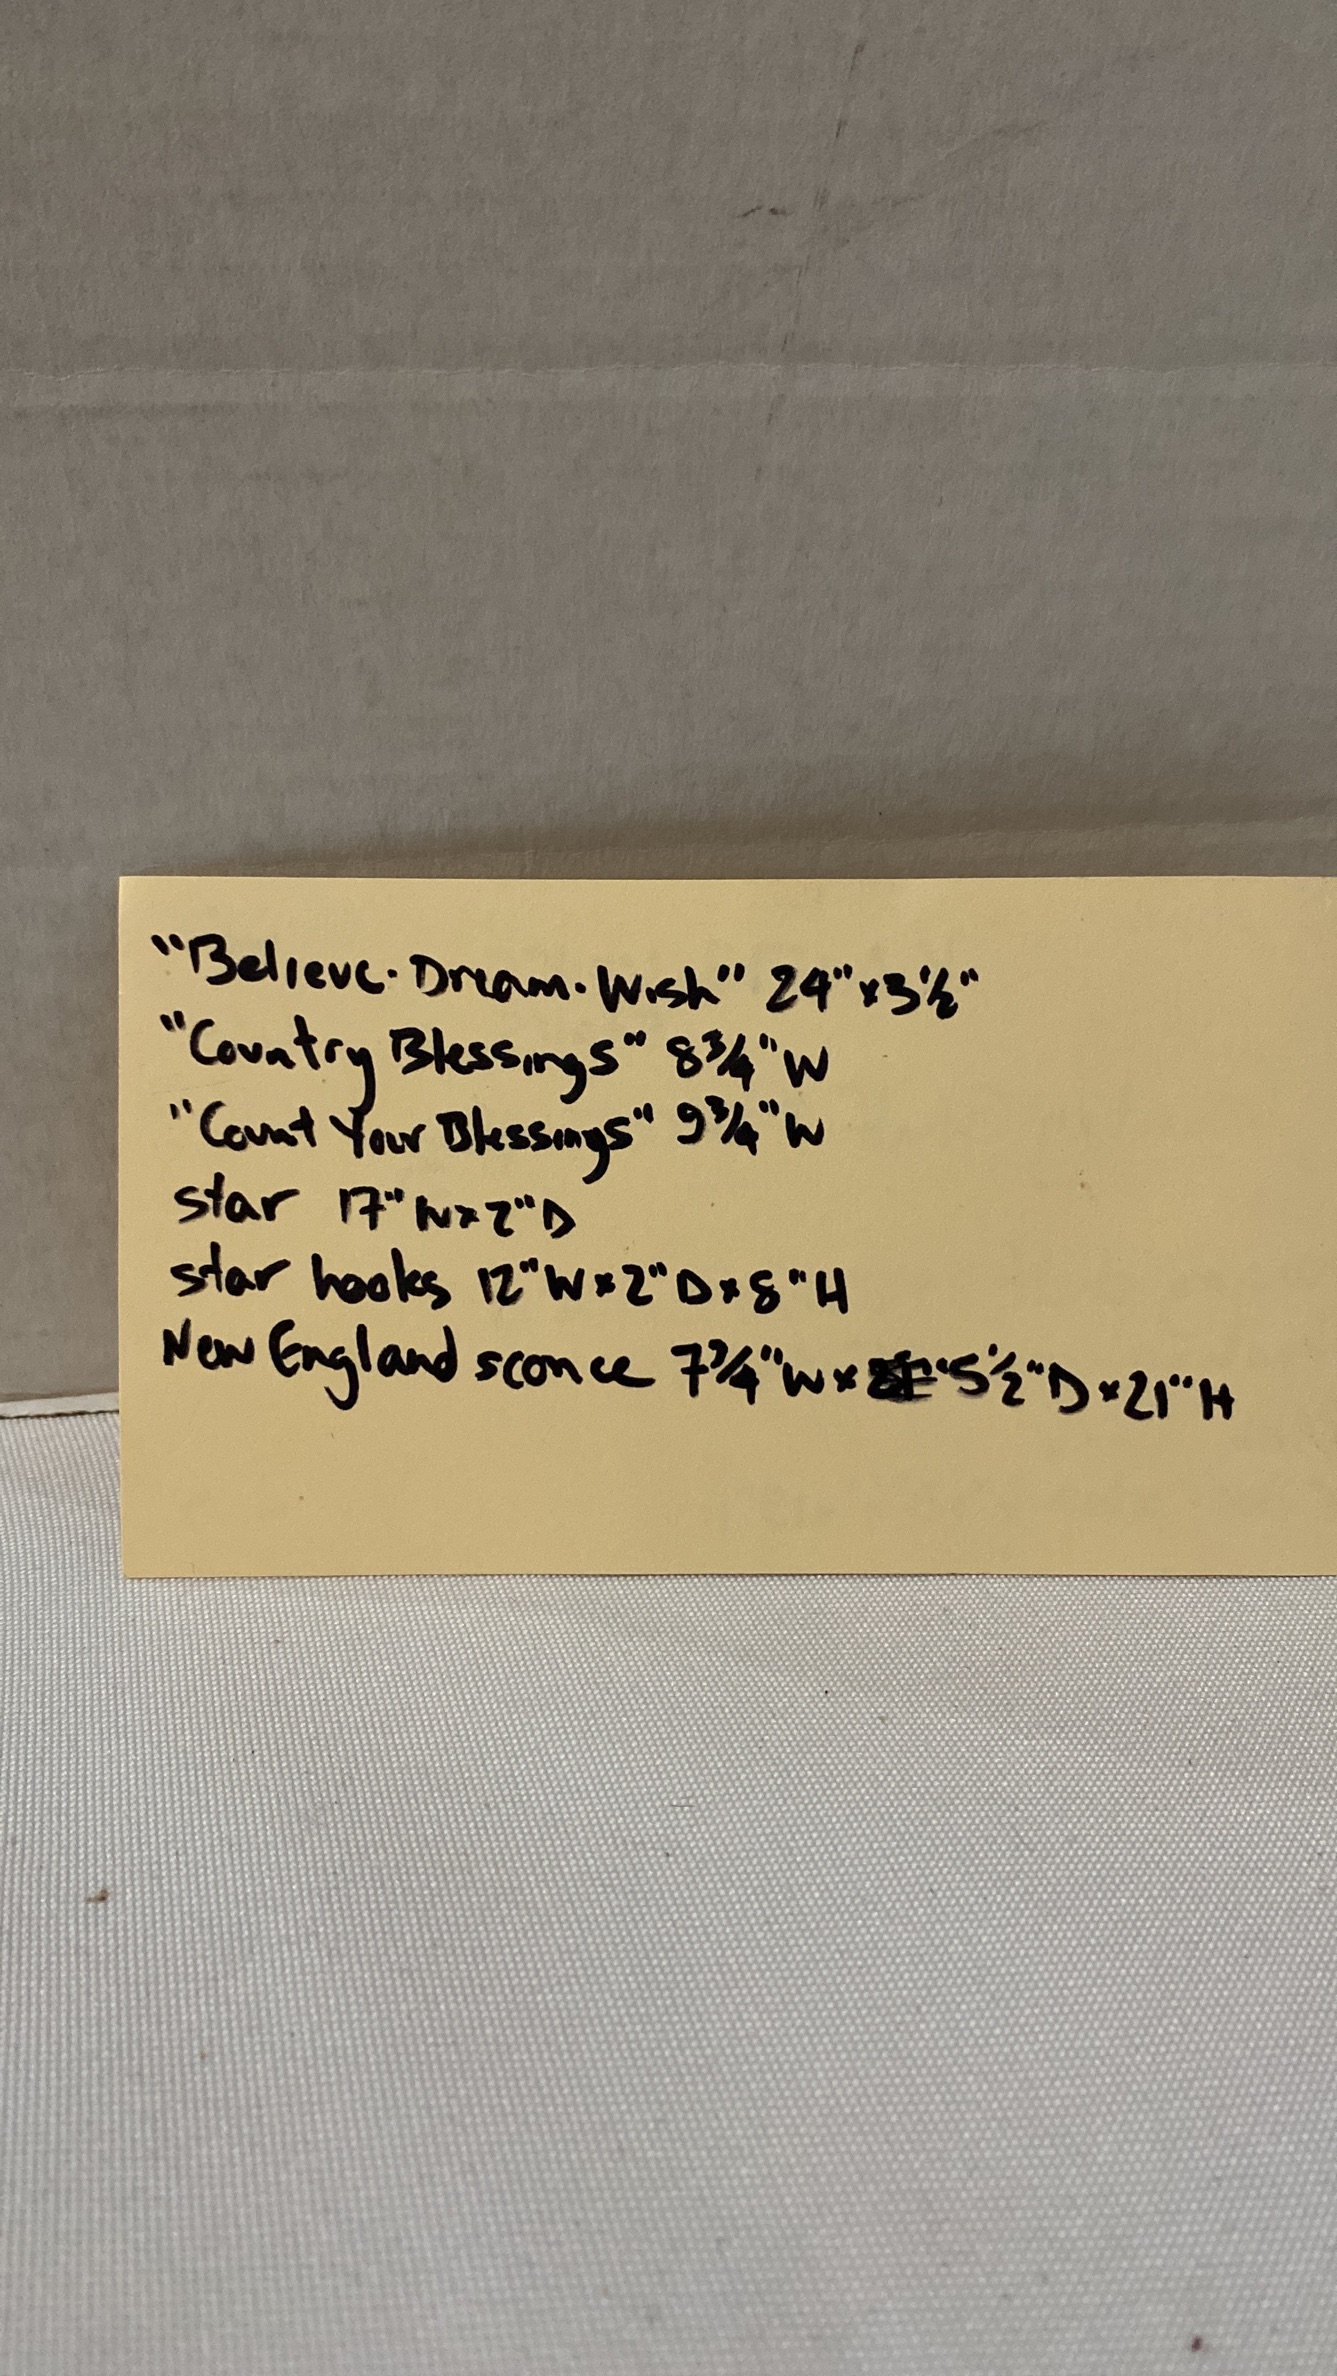 "Believe·Dream·Wish" 24"x3½"
"Country Blessings" 8¾"W
"Count Your Blessings" 9¾"W
star 17"Wx2"D
star hooks 12"Wx2"Dx8"H
New England sconce 7¾"Wx 5½"Dx21"H